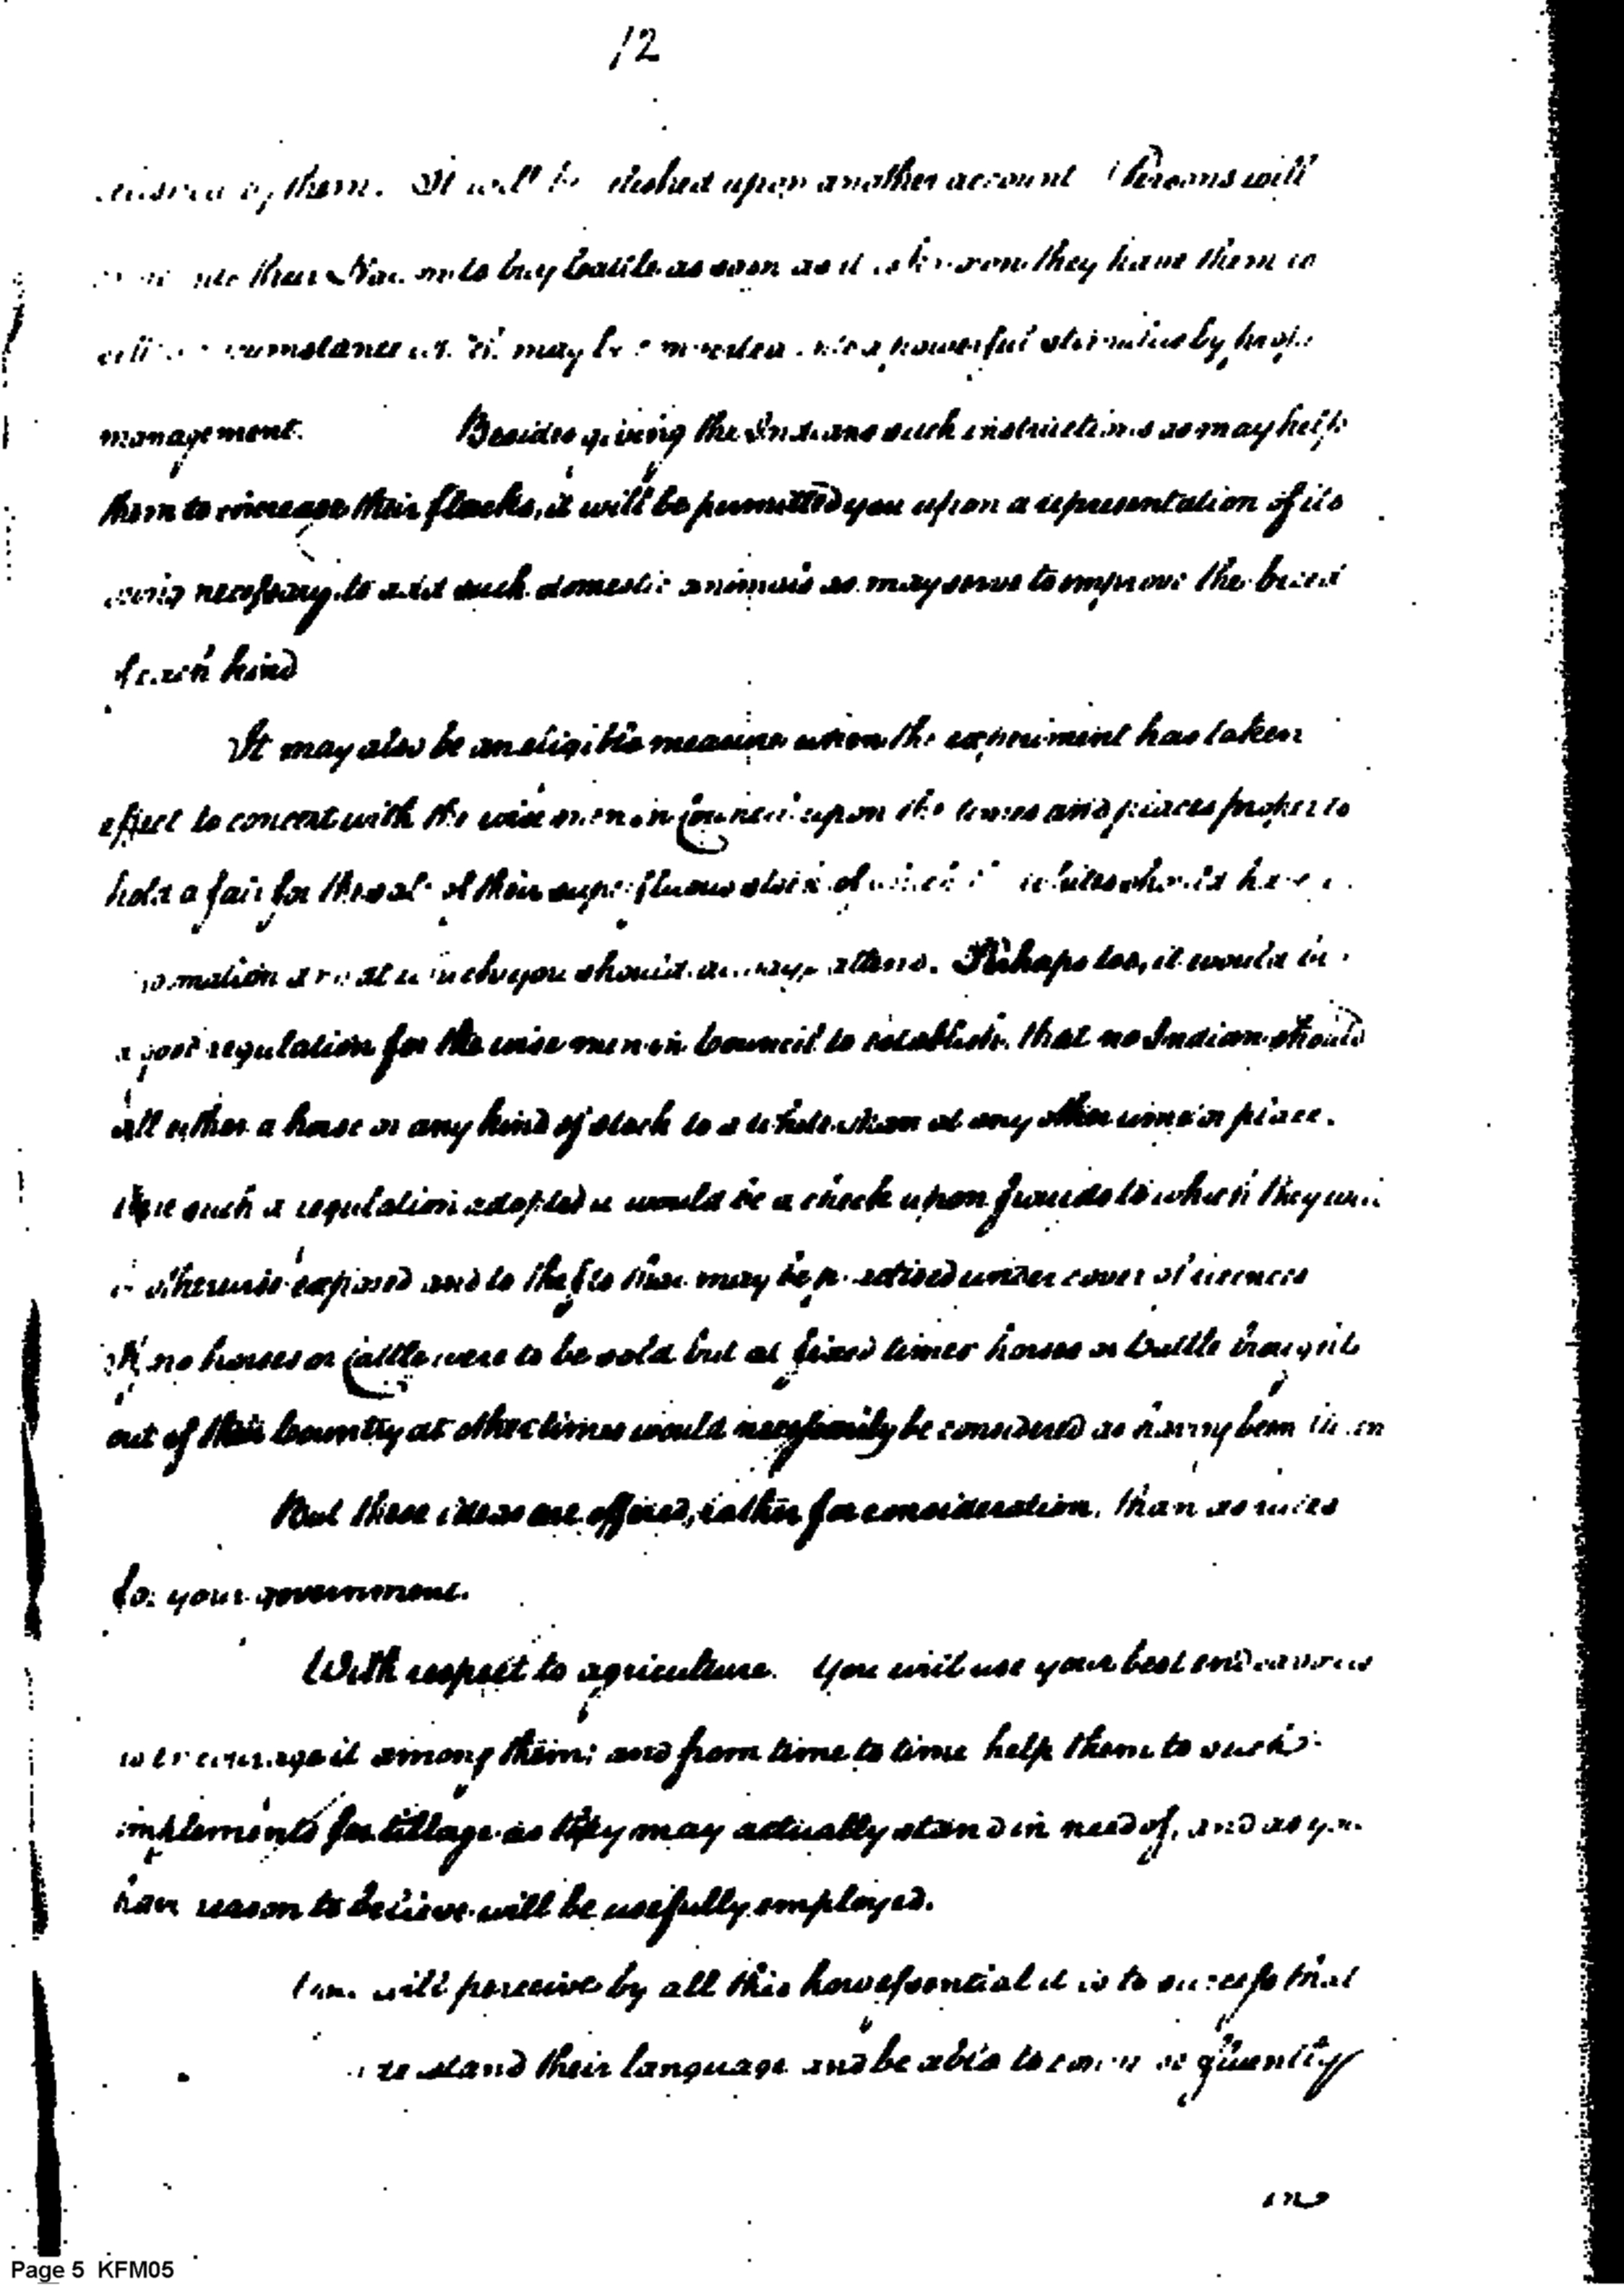 12
them. It will be upon another account Persons will
their to buy Cattle as soon as it is known they have them to
may be a powerful stimulus by
management. Besides giving the Indians such instructions as may help
them to increase their flocks, it will be permitted you upon a representation of its
necessary, to add such domestic animals as may serve to improve the breed
of each kind
It may also be an eligible measure when the experiment has taken
effect to concert with the wise men in Council upon the times and places proper to
hold a fair for the sale of their superfluous stock of should have
and at which you should always attend. Perhaps too, it would be
a good regulation for the wise men in Council to establish, that no Indian should
sell either a horse or any kind of stock to a white man at any other time or place.
Were such a regulation adopted it would be a check upon frauds to which they will
otherwise exposed and to thefts that may be practised under cover of licences
If no horses or Cattle were to be sold but at fixed times horses or Cattle brought
out of their Country at other times would necessarily be considered as having been
But these ideas are offered, rather for consideration, than as rules
for your government.
With respect to agriculture. You will use your best endeavours
to encourage it among them; and from time to time help them to such
implements for tillage as they may actually stand in need of, and as you
have reason to believe will be usefully employed.
You will perceive by all this how essential it is to success that
their language and be able to